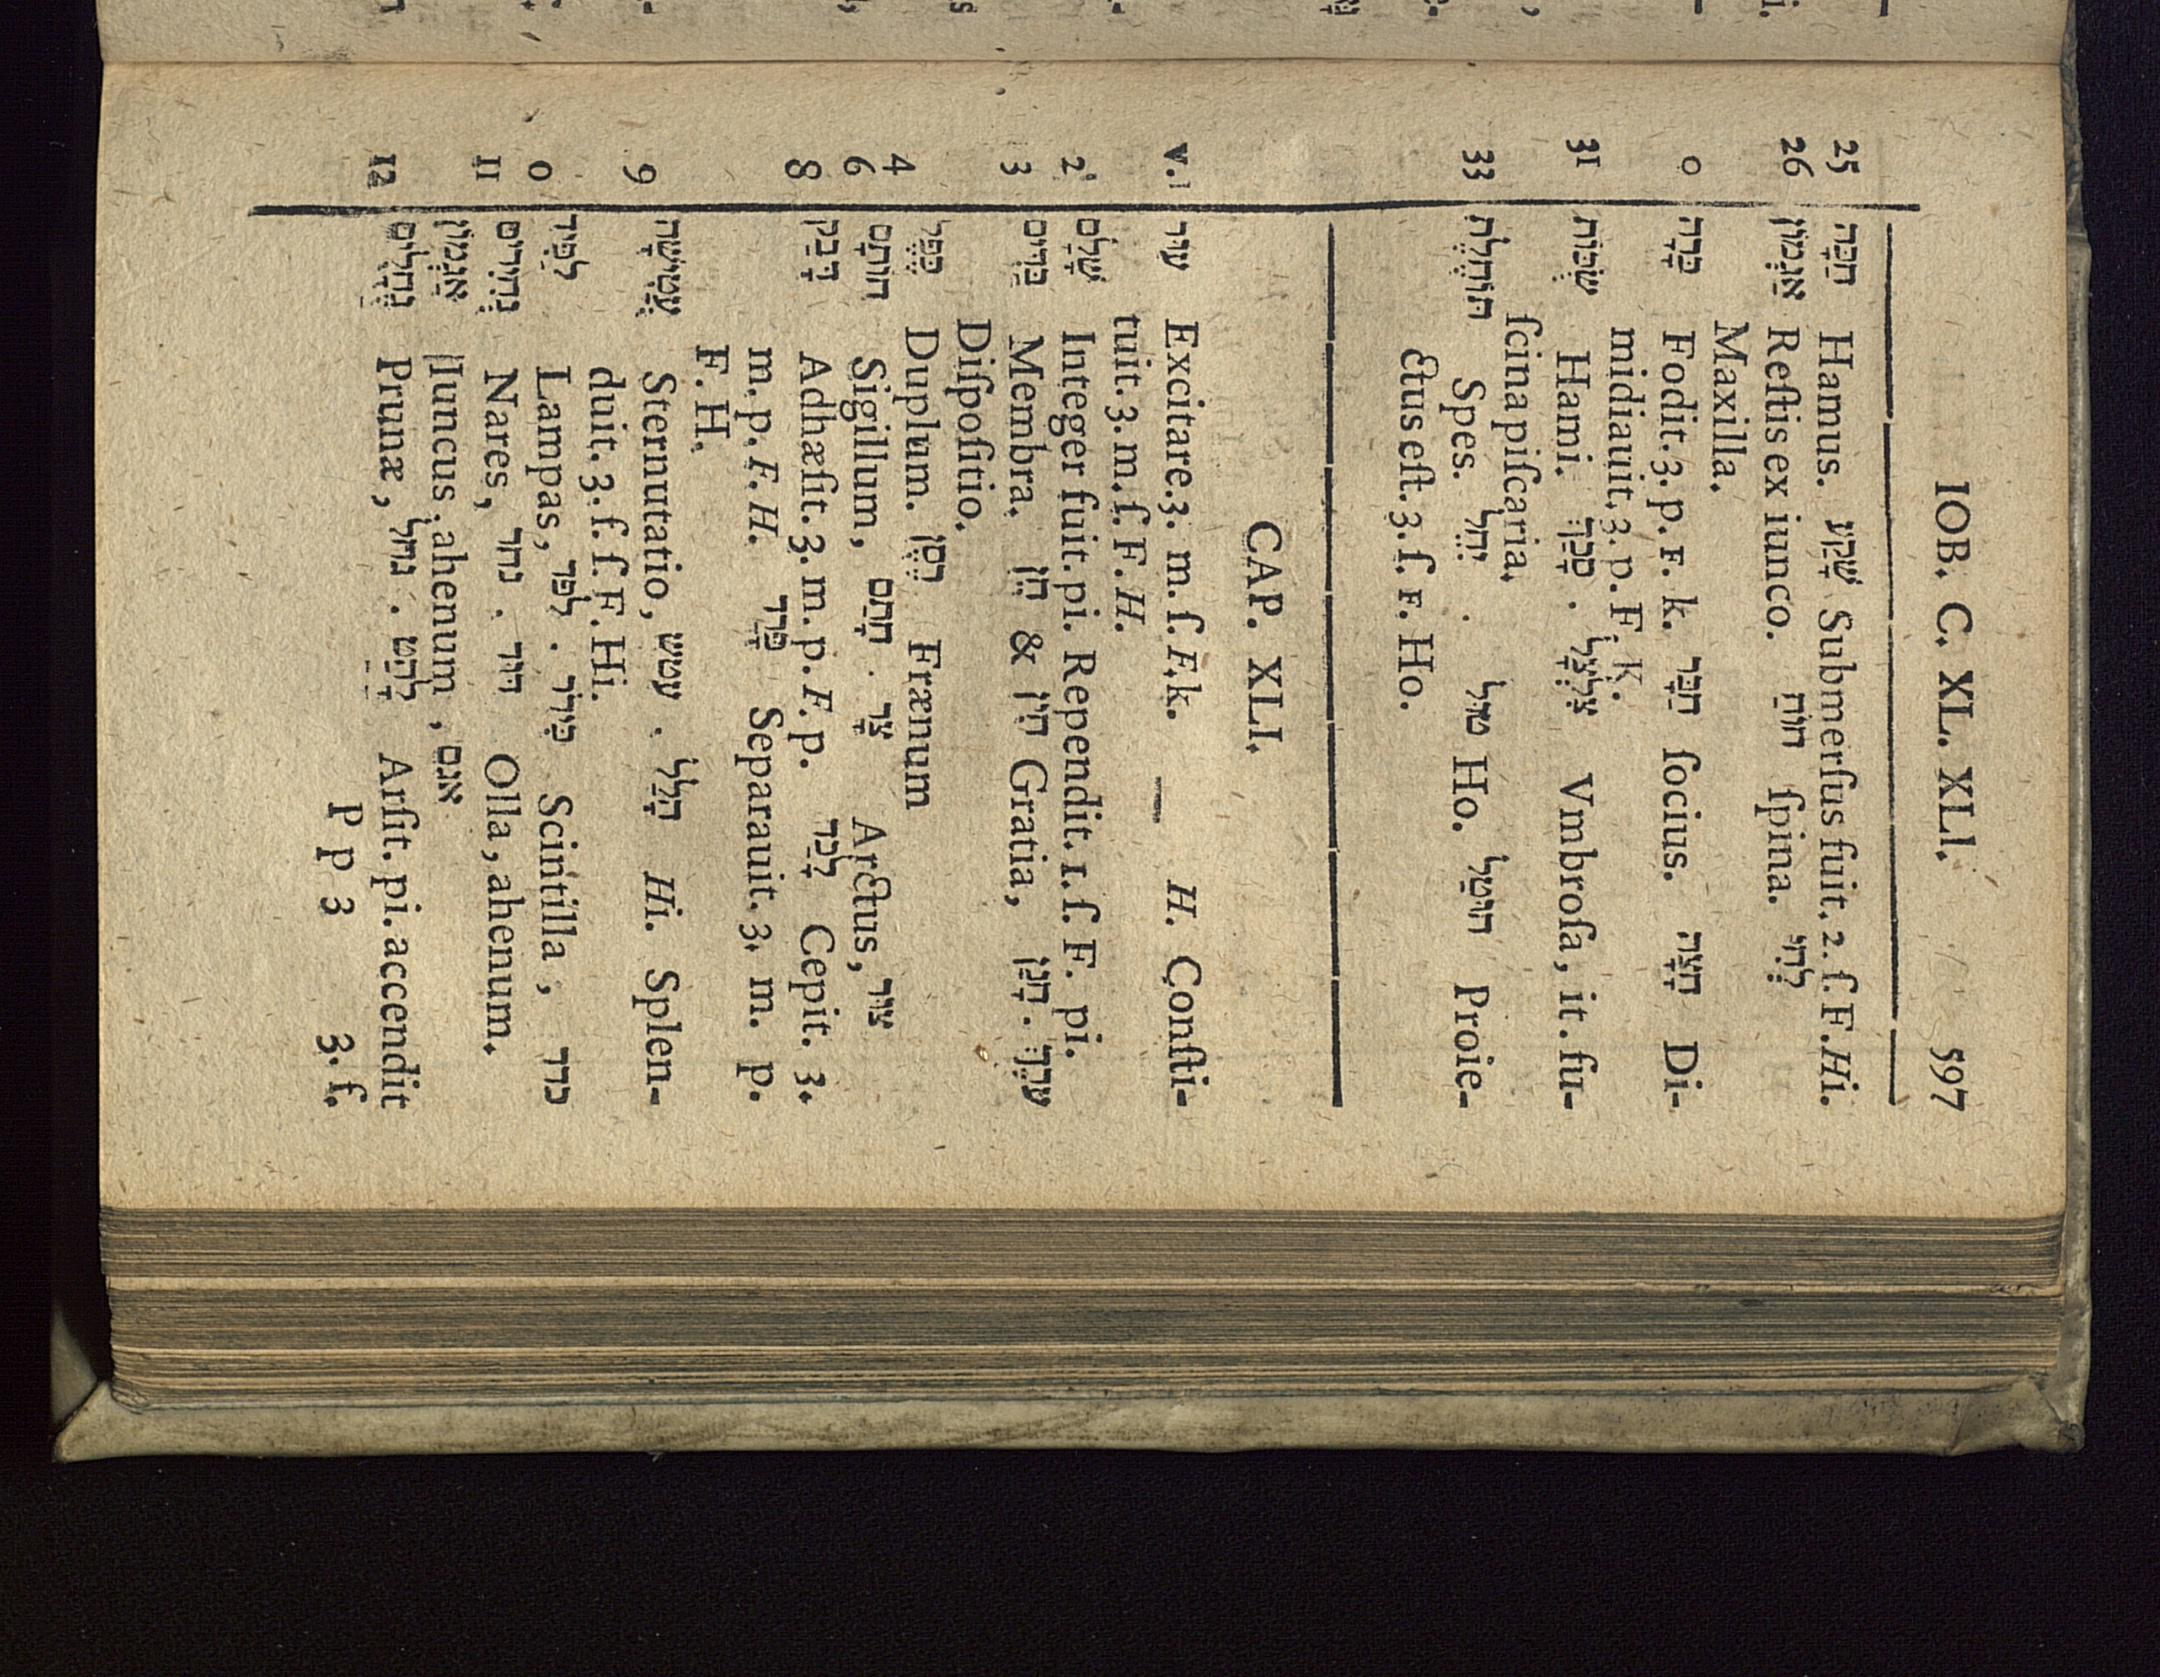 IOB. C. XL. XLI. 597
25 חַכָּה Hamus. שָׁקַע Submerſus fuit. 2. ſ. F. Hi.
26 אַגְמוֹן Reſtis ex iunco. חוֹחַ ſpina. לְחִי
Maxilla.
0 כָּרָה Fodit. 3. p. F. k. חַבָּר ſocius. חָצָה Di-
midiauit. 3. p. F. K.
31 שֻׂכּוֹת Hami. סָכַךְ . צְלָצַל Vmbroſa, it. fu-
ſcina piſcaria.
33 תּוֹחֶלֶת Spes. יָחַל . טוּל Ho. הוּטַל Proie-
ctus eſt. 3. ſ. F. Ho.
CAP. XLI.
v. 1 עוּר Excitare. 3. m. ſ. F. k. — H. Conſti-
tuit. 3. m. ſ. F. H.
2 שָׁלַם Integer fuit. pi. Rependit. 1. ſ. F. pi.
3 בַּדִּים Membra. חֵן & חִין Gratia, חָנַן . עֵרֶךְ
Diſpoſitio.
4 כֶּפֶל Duplum. רֶסֶן Frænum
6 חוֹתָם Sigillum, חָתַם . צַר Arctus, צוּר
8 דָּבַק Adhæſit. 3. m. p. F. p. לָכַד Cepit. 3.
m. p. F. H. פָּרַד Separauit. 3. m. p.
F. H.
9 עֲטִישָׁה Sternutatio, עטש . הָלַל Hi. Splen-
duit. 3. ſ. ſ. F. Hi.
0 לַפִּיד Lampas, לפד . כִּידוֹד Scintilla, כדד
11 נְחִירִים Nares, נחר . דּוּד Olla, ahenum.
אַגְמוֹן Iuncus, ahenum, אגם
12 גֶּחָלִים Prunæ, גחל . לָהַט Arſit. pi. accendit
P p 3 3. ſ.